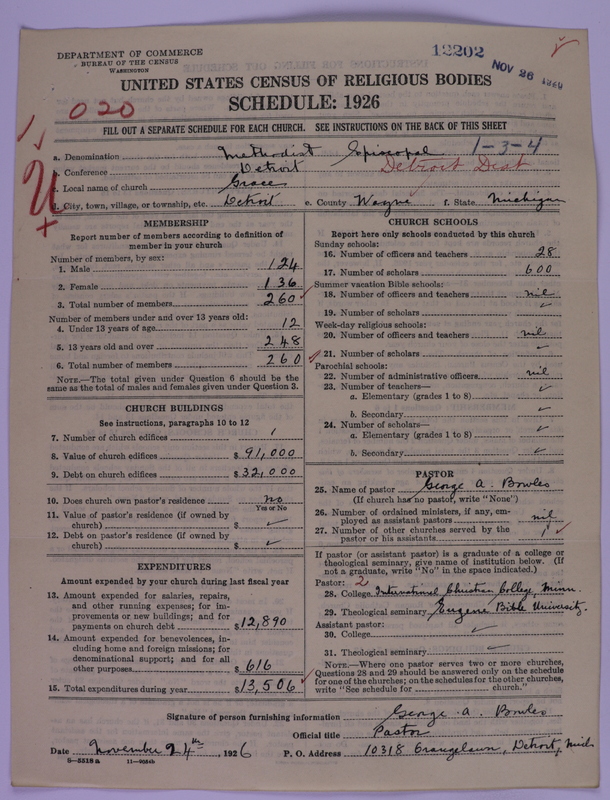 DEPARTMENT OF COMMERCE
BUREAU OF THE CENSUS
WASHINGTON
12202
NOV 26 1926
UNITED STATES CENSUS OF RELIGIOUS BODIES
SCHEDULE: 1926
020
FILL OUT A SEPARATE SCHEDULE FOR EACH CHURCH. SEE INSTRUCTIONS ON THE BACK OF THIS SHEET
a. Denomination Methodist Episcopal 1-3-4
b. Conference Detroit Detroit Dist
c. Local name of church Grace
d. City, town, village, or township, etc. Detroit e. County Wayne f. State Michigan
MEMBERSHIP
Report number of members according to definition of
member in your church
Number of members, by sex:
1. Male 124
2. Female 136
3. Total number of members 260
Number of members under and over 13 years old:
4. Under 13 years of age 12
5. 13 years old and over 248
6. Total number of members 260
NOTE.—The total given under Question 6 should be
the same as the total of males and females given under Question 3.
CHURCH BUILDINGS
See instructions, paragraphs 10 to 12
7. Number of church edifices 1
8. Value of church edifices $ 91,000
9. Debt on church edifices $ 32,000
10. Does church own pastor's residence no
Yes or No
11. Value of pastor's residence (if owned by
church) $ ✓
12. Debt on pastor's residence (if owned by
church) $ ✓
EXPENDITURES
Amount expended by your church during last fiscal year
13. Amount expended for salaries, repairs,
and other running expenses; for im-
provements or new buildings; and for
payments on church debt $12,890
14. Amount expended for benevolences, in-
cluding home and foreign missions; for
denominational support; and for all
other purposes $ 616
15. Total expenditures during year $13,506
CHURCH SCHOOLS
Report here only schools conducted by this church
Sunday schools:
16. Number of officers and teachers 28
17. Number of scholars 600
Summer vacation Bible schools:
18. Number of officers and teachers nil
19. Number of scholars ✓
Week-day religious schools:
20. Number of officers and teachers nil
21. Number of scholars ✓
Parochial schools:
22. Number of administrative officers nil
23. Number of teachers—
a. Elementary (grades 1 to 8) ✓
b. Secondary ✓
24. Number of scholars—
a. Elementary (grades 1 to 8) ✓
b. Secondary ✓
PASTOR
25. Name of pastor George A. Bowles
(If church has no pastor, write "None")
26. Number of ordained ministers, if any, em-
ployed as assistant pastors nil
27. Number of other churches served by the
pastor or his assistants 1
If pastor (or assistant pastor) is a graduate of a college or
theological seminary, give name of institution below. (If
not a graduate, write "No" in the space indicated.)
Pastor: 2
28. College International Christian College, Minn.
29. Theological seminary Eugene Bible University.
Assistant pastor:
30. College ✓
31. Theological seminary ✓
NOTE.—Where one pastor serves two or more churches,
Questions 28 and 29 should be answered only on the schedule
for one of the churches; on the schedules for the other churches,
write "See schedule for church."
Signature of person furnishing information George A. Bowles
Official title Pastor
Date November 24th, 1926 P. O. Address 10318 Orangelawn, Detroit, Mich
S—5318 a 11—9054b